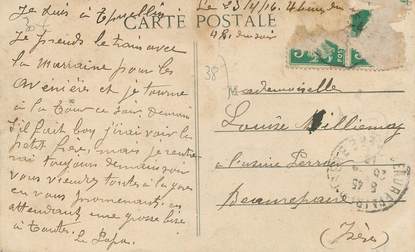 CARTE POSTALE
Je suis à
Le 23/4/16. 4 heures
du soir
Je prends le tram avec
la Marraine pour les
Avenières et je tourne
à la Tour ce soir, demain
s'il fait bon j'irai voir le
petit frère, mais je rentre
rai toujours demain soir
vous viendrez toutes à la gare
en vous promenant. en
attendant une grosse bise
à toutes.
Le Papa
38
Mademoiselle
Louise Milliemaz
à l'usine Perrin
Beaurepaire
(Isère)